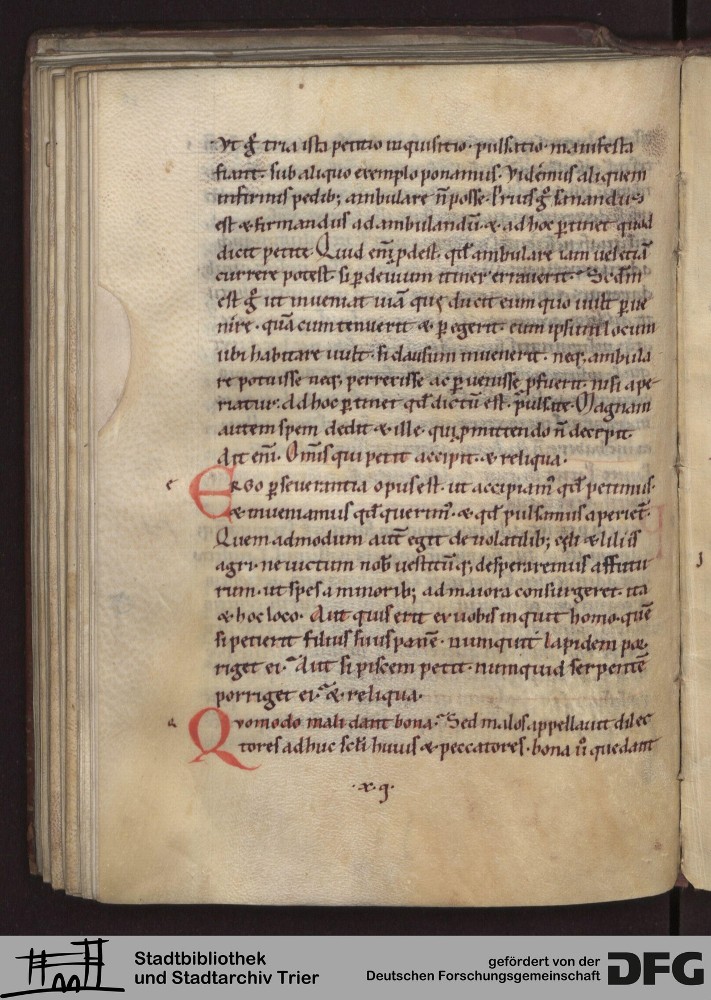 Vt g̊ tria ista petitio inquisitio · pulsatio · manifesta
fiant · sub aliquo exemplo ponamus · Videmus aliquem
infirmis pedib; ambulare n̄ posse · Prius g̊ sanandus
est & firmandus ad ambulandū · & ad hoc ꝑtinet quod
dicit petite · Quid eni ꝓdest · qd̄ ambulare iam uel etiā
currere potest · si ꝑ deuium itiner errauerit · Secdm
est g̊ ut inueniat uiā quę ducit eum quo uult ꝑue
nire · quā cum tenuerit & ꝑegerit · eum ipsum locum
ubi habitare uult · si clausum inuenerit · neq; ambula
re potuisse neq; perrexisse ac ꝑuenisse ꝓfuerit · nisi ape
riatur · Ad hoc ꝑtinet qd̄ dictū est · pulsate · Magnam
autem spem dedit & ille · qui ꝓmittendo n̄ decepit ·
Ait eni · Omīs qui petit accipit · & reliqua ·
e Ergo ꝑseuerantia opus est · ut accipiam' qd̄ petimus ·
& inueniamus qd̄ querim' · & qd̄ pulsamus aperiet̄ ·
Quemadmodum aut̄ egit de uolatilib; cęli & liliis
agri · ne uictum nob̄ uestitūq; desperaremus affutu
rum · ut spes a minorib; ad maiora consurgeret · ita
& hoc loco · Aut quis erit ex uobis inquit homo · quē
si petierit filius suus panē · numquit lapidem por
riget ei · Aut si piscem petit · numquid serpentē
porriget ei · & reliqua ·
a Quomodo mali dant bona · Sed malos appellauit dilec
tores adhuc scl̄i huius & peccatores · bona ů que dant
· x · q ·
Stadtbibliothek
und Stadtarchiv Trier
gefördert von der
Deutschen Forschungsgemeinschaft
DFG